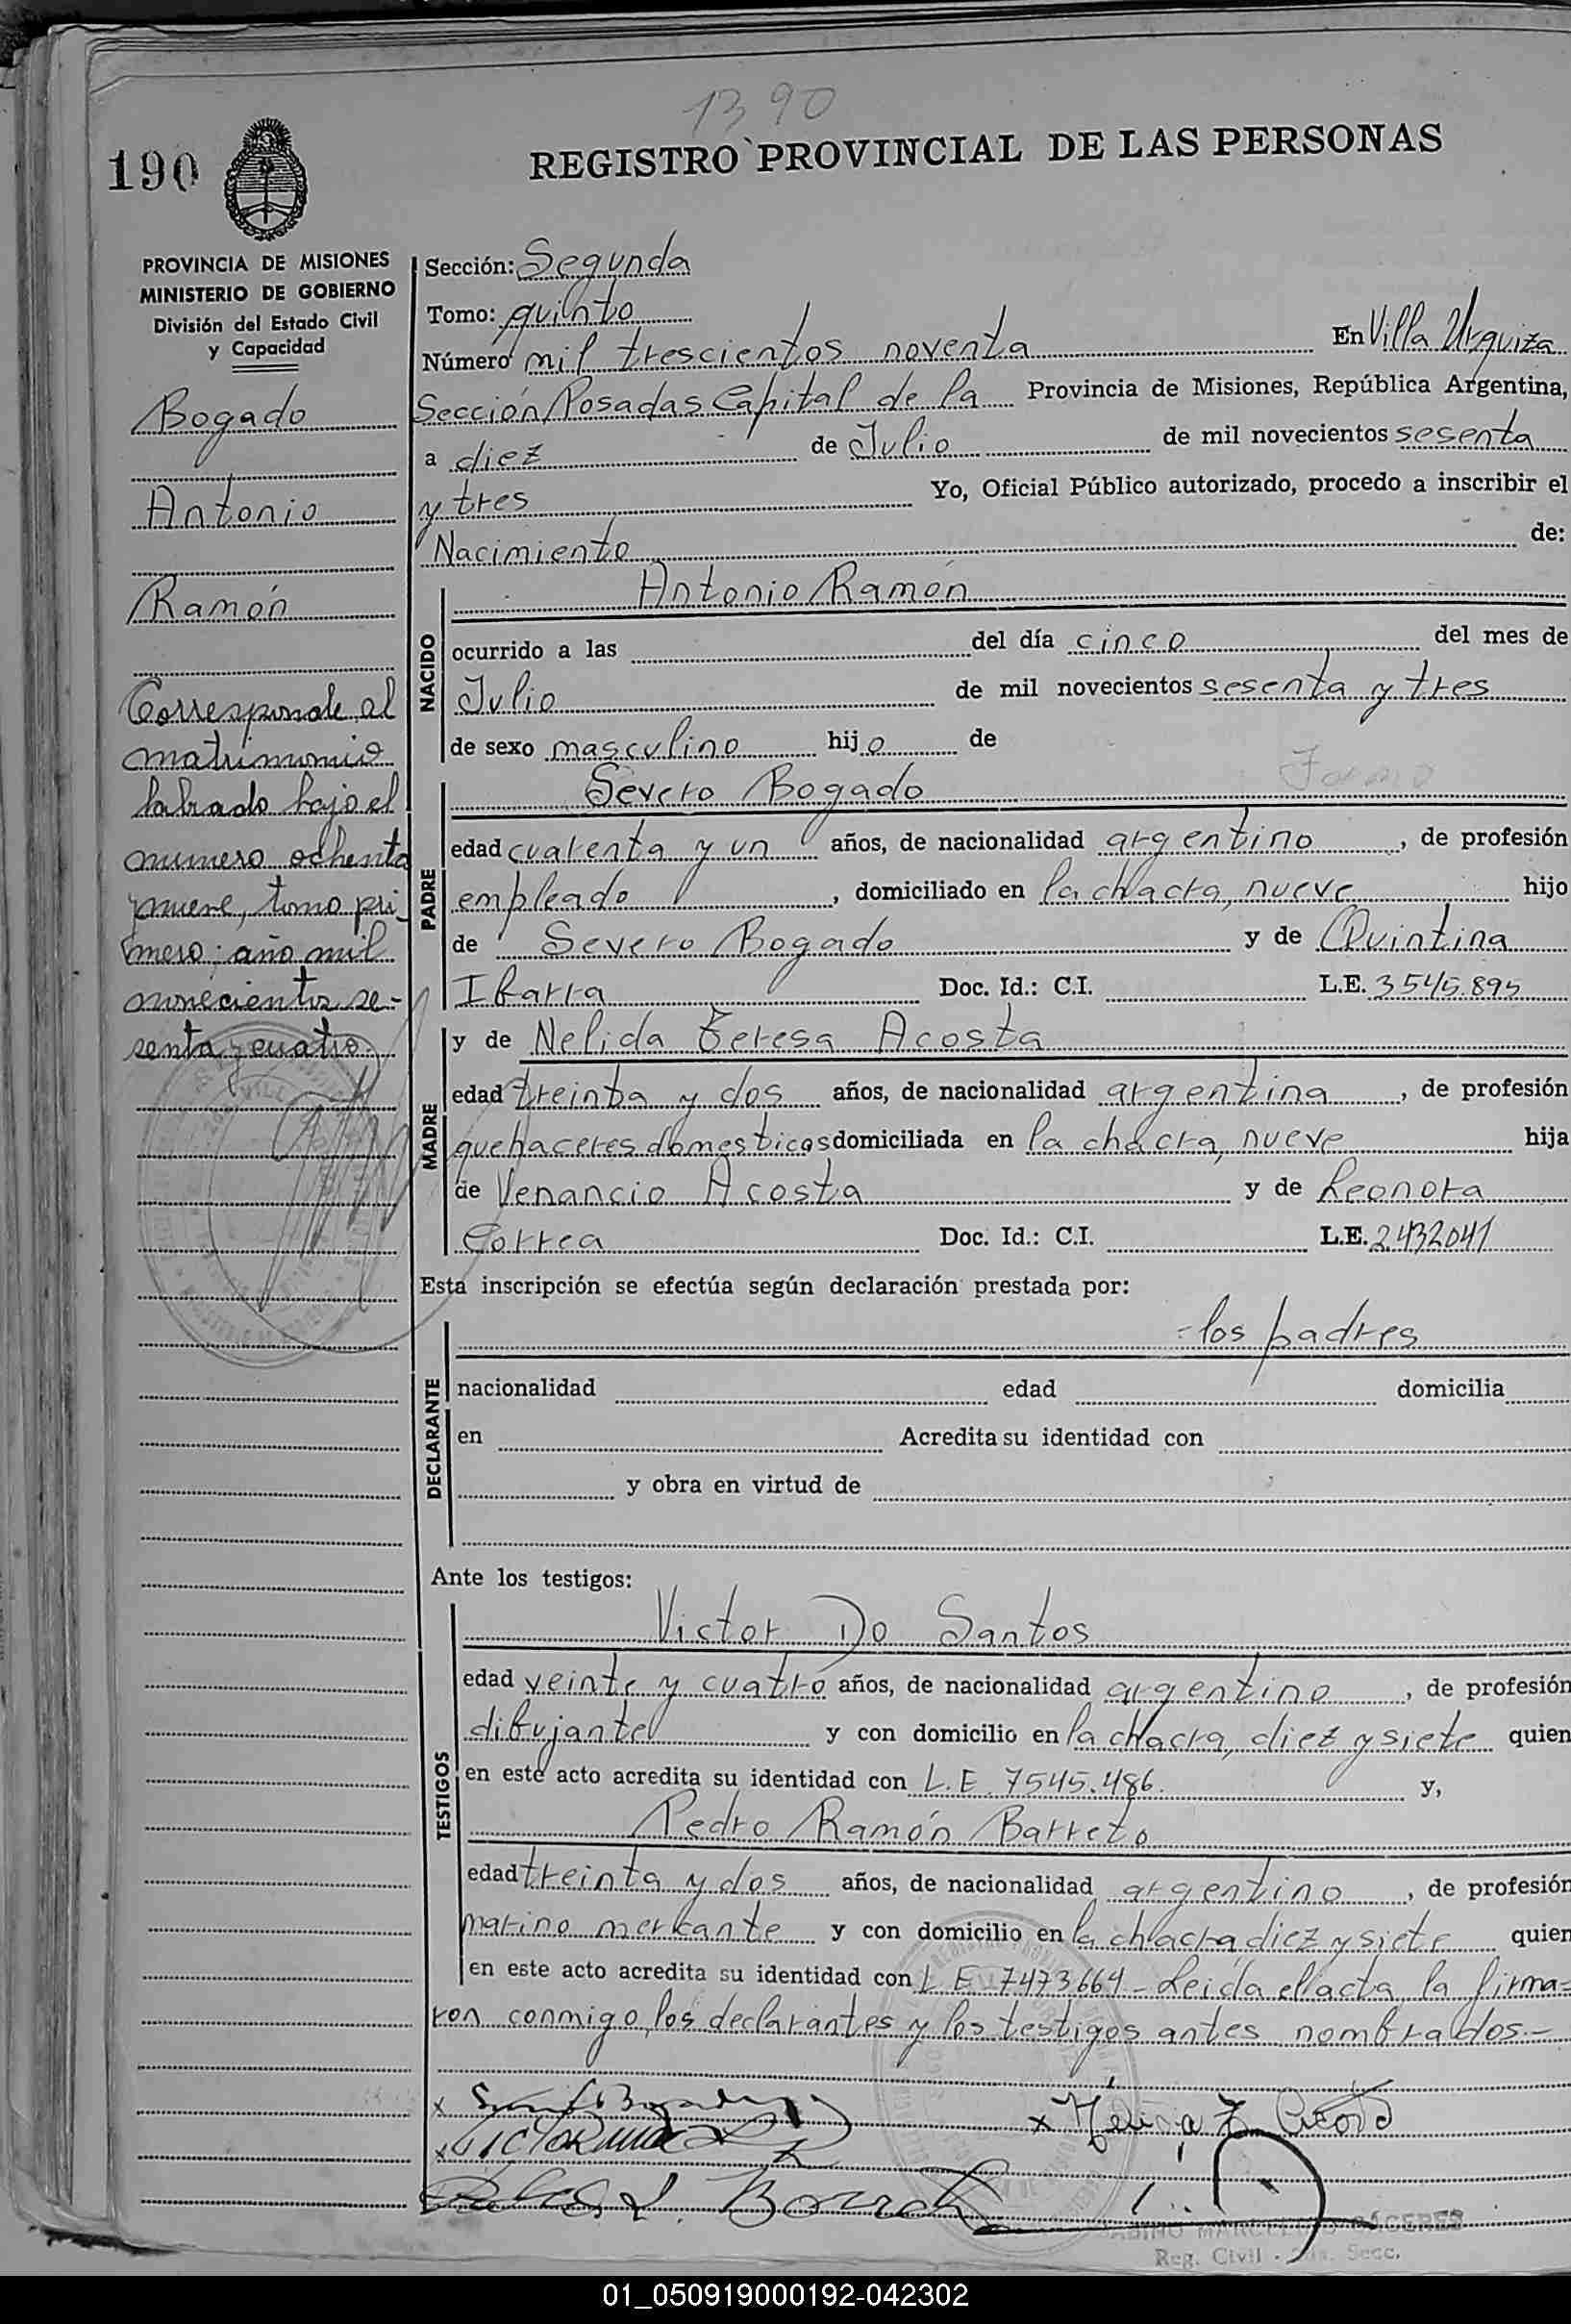 1390
190
REGISTRO PROVINCIAL DE LAS PERSONAS
PROVINCIA DE MISIONES
MINISTERIO DE GOBIERNO
División del Estado Civil
y Capacidad
Bogado
Antonio
Ramón
Corresponde al
matrimonio
labrado bajo el
numero ochenta
y nueve, tomo pri-
mero; año mil
novecientos se-
senta y cuatro.
Sección: Segunda
Tomo: quinto
Número mil trescientos noventa En Villa Urquiza
Sección Posadas Capital de la Provincia de Misiones, República Argentina,
a diez de Julio de mil novecientos sesenta
y tres Yo, Oficial Público autorizado, procedo a inscribir el
Nacimiento de:
NACIDO
Antonio Ramón
ocurrido a las del día cinco del mes de
Julio de mil novecientos sesenta y tres
de sexo masculino hijo de
PADRE
Severo Bogado
edad cuarenta y un años, de nacionalidad argentino, de profesión
empleado, domiciliado en la chacra, nueve hijo
de Severo Bogado y de Quintina
Ibarra Doc. Id.: C.I. L.E. 3545.895
MADRE
y de Nelida Teresa Acosta
edad treinta y dos años, de nacionalidad argentina, de profesión
quehaceres domesticos domiciliada en la chacra, nueve hija
de Venancio Acosta y de Leonora
Correa Doc. Id.: C.I. L.E. 2.432041
Esta inscripción se efectúa según declaración prestada por:
DECLARANTE
-los padres
nacionalidad edad domicilia
en Acredita su identidad con
y obra en virtud de
Ante los testigos:
TESTIGOS
Victor Do Santos
edad veinte y cuatro años, de nacionalidad argentino, de profesión
dibujante y con domicilio en la chacra, diez y siete quien
en este acto acredita su identidad con L.E. 7545.486. y,
Pedro Ramón Barreto
edad treinta y dos años, de nacionalidad argentino, de profesión
marino mercante y con domicilio en la chacra diez y siete quien
en este acto acredita su identidad con L E 7473664 - Leida el acta la firma=
ron conmigo, los declarantes y los testigos antes nombrados.-
Reg. Civil - 2da. Secc.
01_050919000192-042302